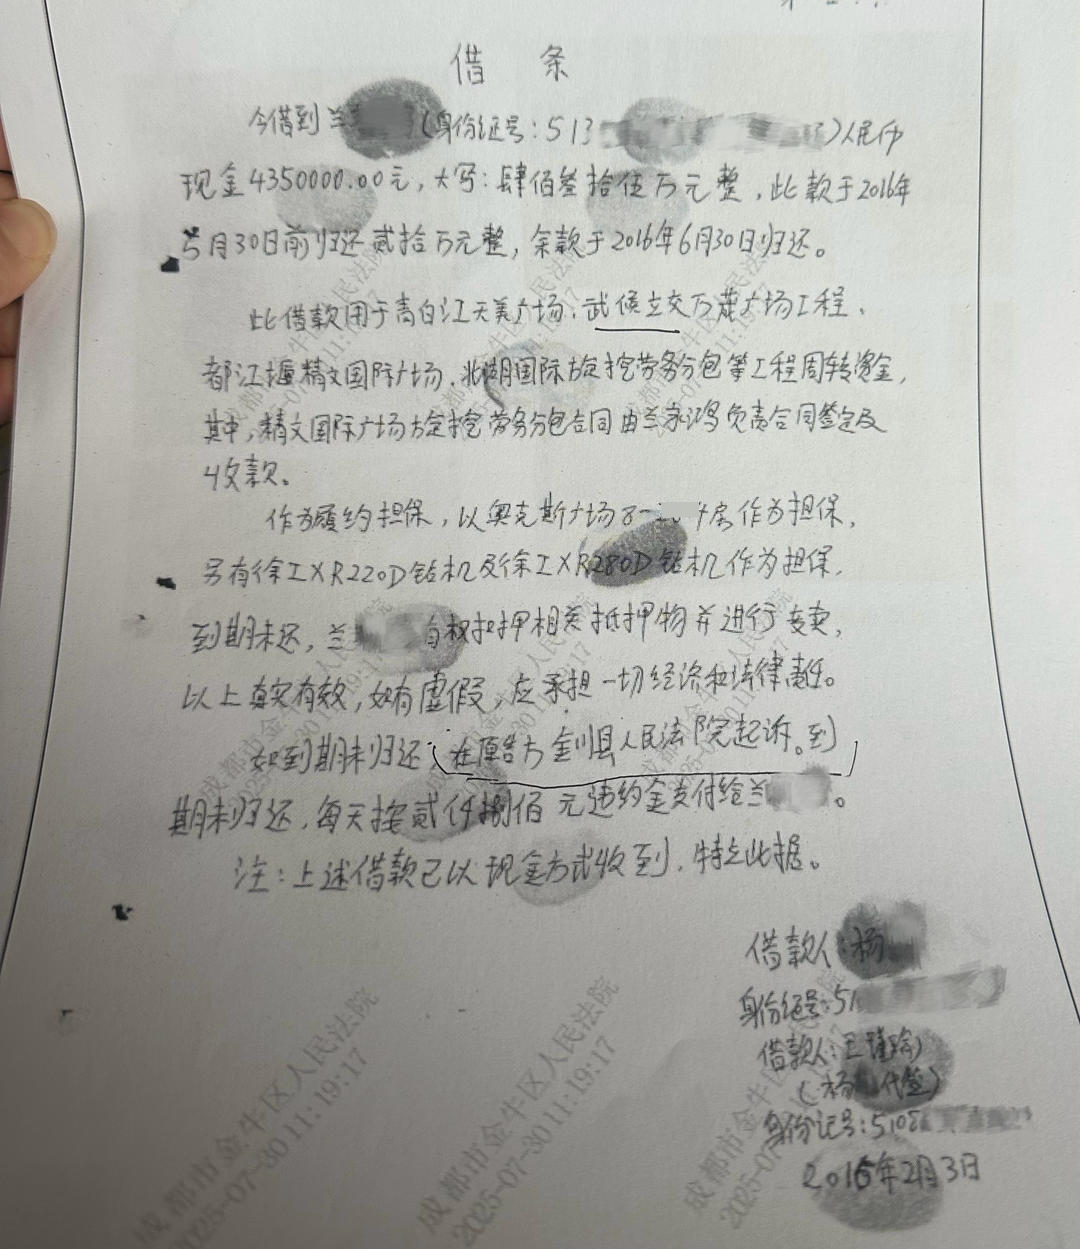 借 条
今借到兰 (身份证号:513 )人民币
现金4350000.00元,大写:肆佰叁拾伍万元整,此款于2016年
5月30日前归还贰拾万元整,余款于2016年6月30日归还。
此借款用于青白江天美广场、武候立交万 广场工程、
都江堰精文国际广场、北湖国际旋挖劳务分包等工程周转资金,
其中,精文国际广场旋挖劳务分包合同由兰家鸿负责合同签定及
收款。
作为履约担保,以奥克斯广场8- 房作为担保,
另有徐工XR220D钻机及徐工XR280D钻机作为担保,
到期未还,兰 有权扣押相关抵押物并进行变卖,
以上真实有效,如有虚假,应承担一切经济和法律责任。
如到期未归还,在原告方金川县人民法院起诉。到
期未归还,每天按贰仟捌佰元违约金支付给兰 。
注:上述借款已以现金方式收到,特立此据。
借款人:杨
身份证号:51
借款人:王 
(杨 代签)
身份证号:5108
2016年2月3日
成都市金牛区人民法院
2025-07-30 11:19:17
成都市金牛区人民法院
2025-07-30 11:19:17
成都市金牛区人民法院
2025-07-30 11:19:17